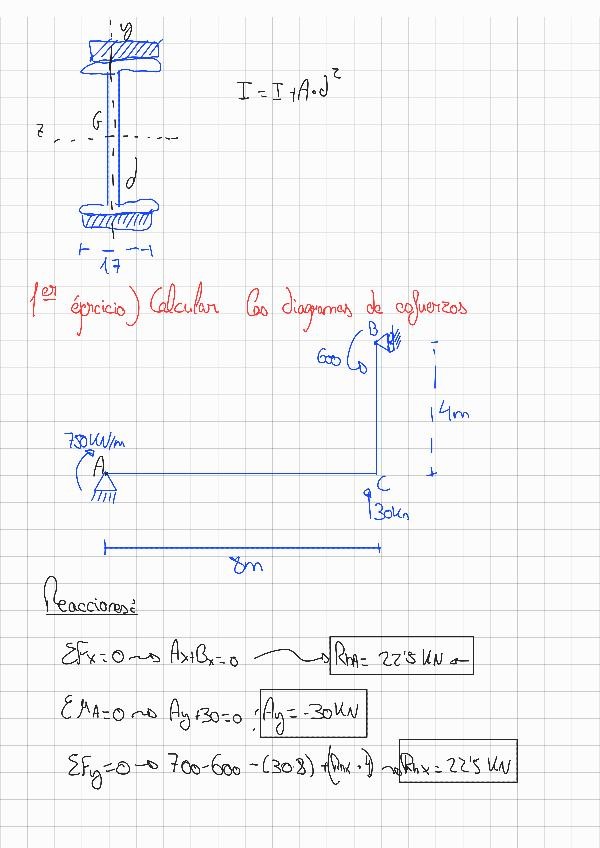 y
I = I + A·d²
z
G
d
17
1er éjrcicio) Calcular los diagramas de esfuerzos
B
600
4m
750 KN/m
A
C
30Kn
8m
Reacciones:
ΣFx=0 → Ax+Bx=0 → RhA= 22'5 KN ←
ΣMA=0 → Ay+30=0; Ay=-30KN
ΣFy=0 → 700-600-(30·8)+(Rhx·4) → Rhx=22'5 KN